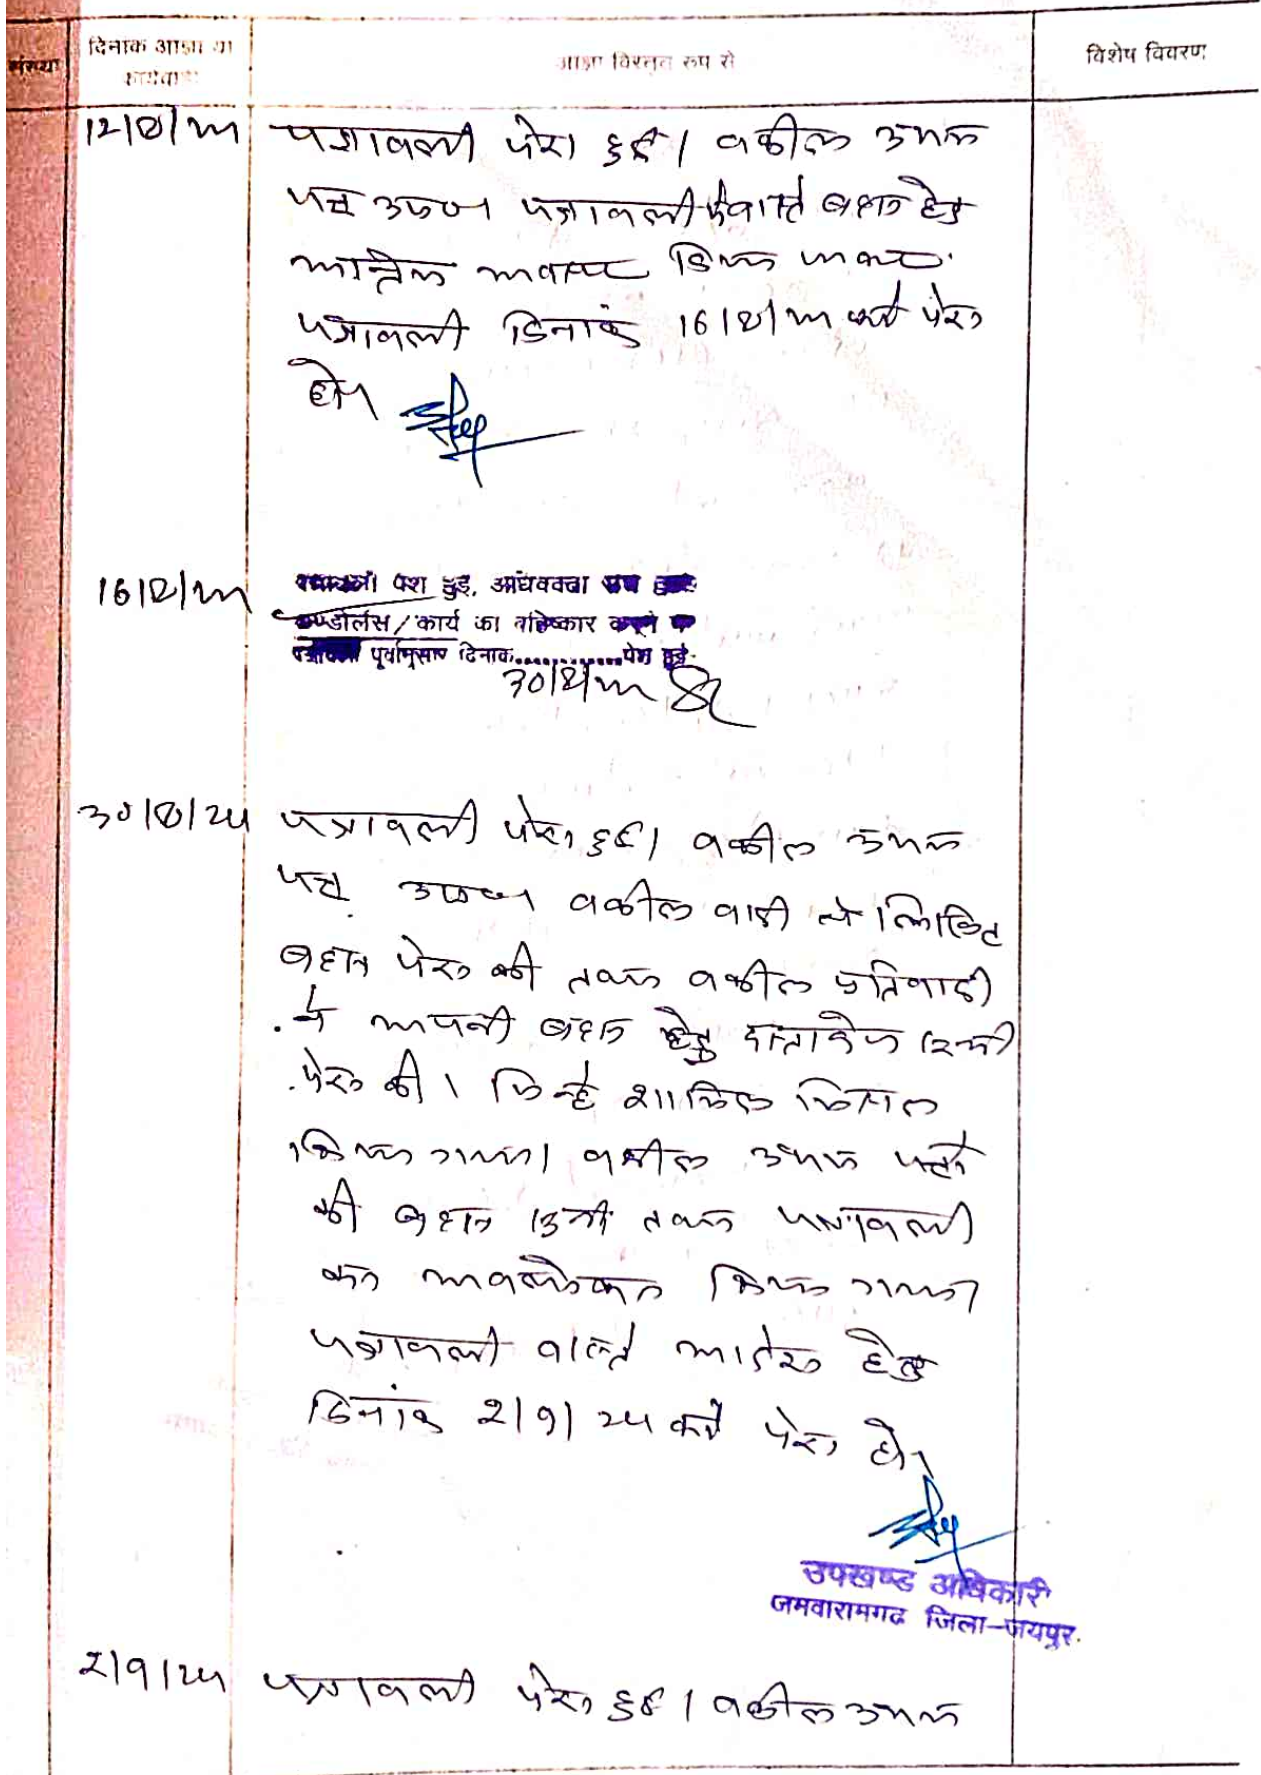 संख्या
दिनाक आज्ञा या
कार्यवाही
आज्ञा विस्तृत रूप से
विशेष विवरण
12/8/24 पत्रावली पेश हुई। वकील उभय
पक्ष उप० पत्रावली वास्ते बहस हेतु
अन्तिम अवसर दिया
पत्रावली दिनांक 16/8/24 को पेश
हो।
16/8/24 पत्रावली पेश हुई, अधिवक्ता
कण्डोलेंस/कार्य का बहिष्कार करने
पत्रावली पूर्वानुसार दिनांक............पेश हुई
30/8/24
30/8/24 पत्रावली पेश हुई। वकील उभय
पक्ष उप० वकील वादी ने लिखित
बहस पेश की तथा वकील प्रतिवादी
ने अपनी बहस हेतु दस्तावेज
पेश की। जिन्हे शामिल मिसल
किया गया। वकील उभय पक्षो
की बहस सुनी तथा पत्रावली
का अवलोकन किया गया।
पत्रावली वास्ते आदेश हेतु
दिनांक 2/9/24 को पेश हो।
उपखण्ड अधिकारी
जमवारामगढ जिला-जयपुर.
2/9/24 पत्रावली पेश हुई। वकील उभय